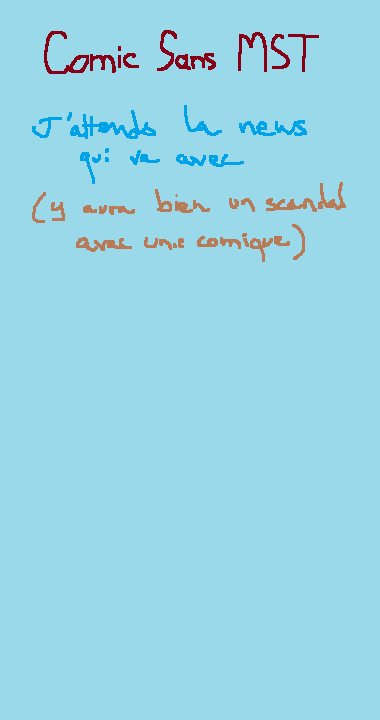 Comic Sans MST
J'attends la news
qui va avec
(y aura bien un scandal
avec un.e comique)